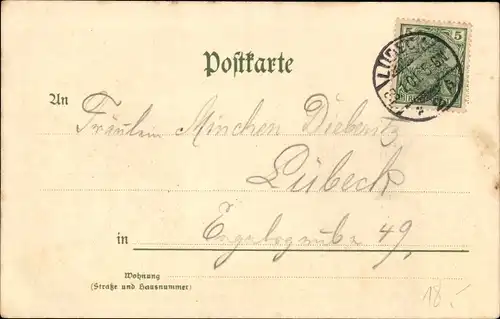 5 5
LÜBECK
Postkarte
An
Fräulein Minchen Diebertz
Lübeck
in Engelsgrube 49,
Wohnung
(Straße und Hausnummer)
18.